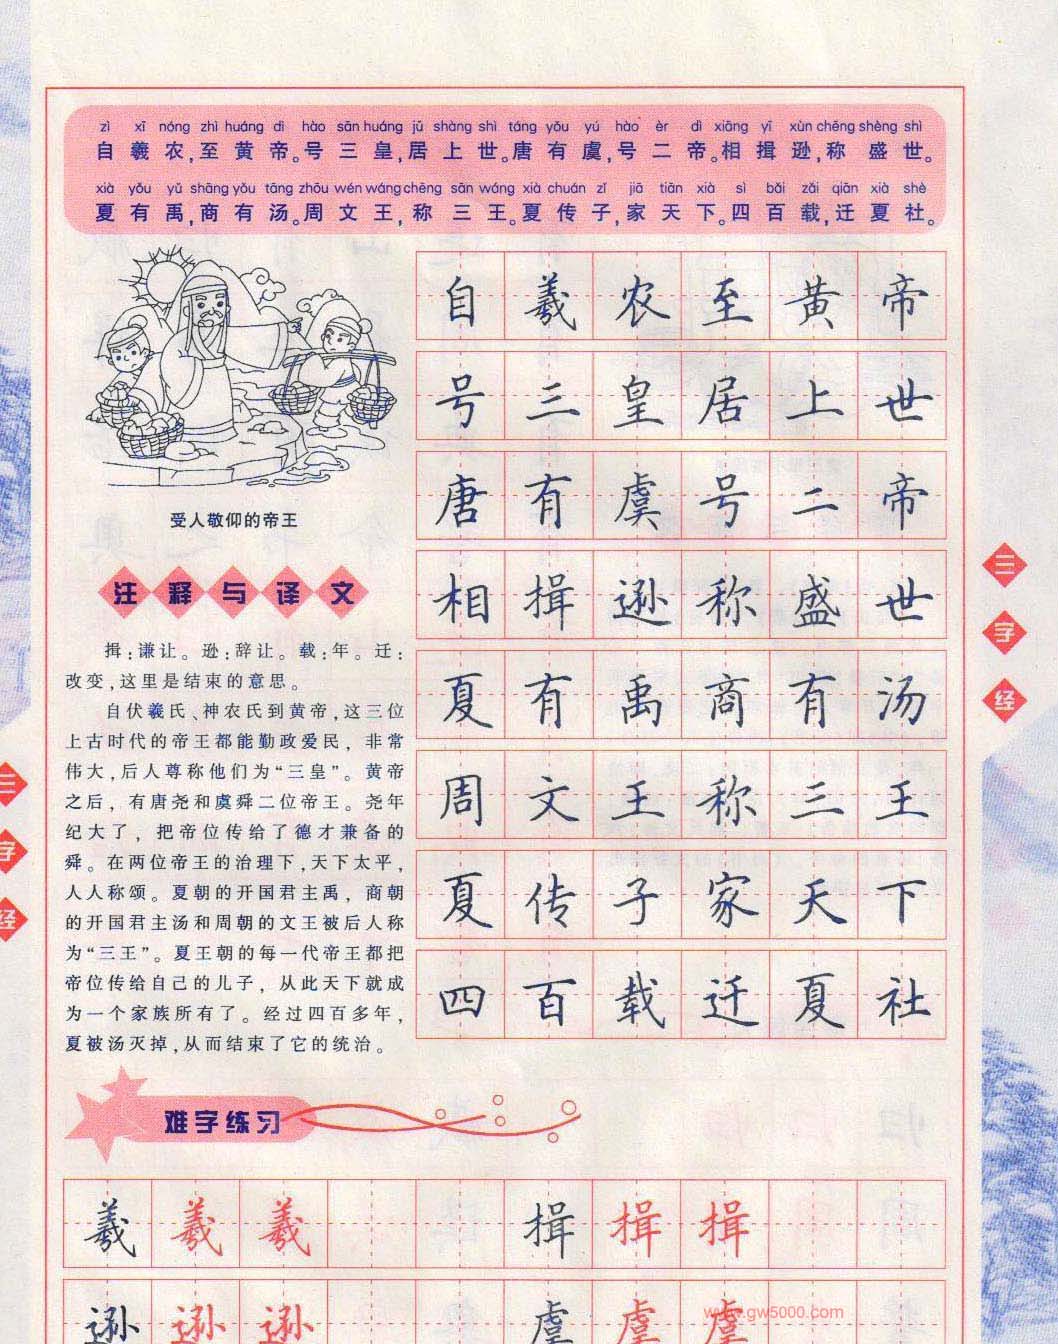 zì xī nóng zhì huáng dì hào sān huáng jū shàng shì táng yǒu yú hào èr dì xiāng yī xùn chēng shèng shì
自羲农,至黄帝。号三皇,居上世。唐有虞,号二帝。相揖逊,称盛世。
xià yǒu yǔ shāng yǒu tāng zhōu wén wáng chēng sān wáng xià chuán zǐ jiā tiān xià sì bǎi zǎi qiān xià shè
夏有禹,商有汤。周文王,称三王。夏传子,家天下。四百载,迁夏社。
受人敬仰的帝王
注释与译文
揖:谦让。逊:辞让。载:年。迁:
改变,这里是结束的意思。
自伏羲氏、神农氏到黄帝,这三位
上古时代的帝王都能勤政爱民,非常
伟大,后人尊称他们为“三皇”。黄帝
之后,有唐尧和虞舜二位帝王。尧年
纪大了,把帝位传给了德才兼备的
舜。在两位帝王的治理下,天下太平,
人人称颂。夏朝的开国君主禹,商朝
的开国君主汤和周朝的文王被后人称
为“三王”。夏王朝的每一代帝王都把
帝位传给自己的儿子,从此天下就成
为一个家族所有了。经过四百多年,
夏被汤灭掉,从而结束了它的统治。
自羲农至黄帝
号三皇居上世
唐有虞号二帝
相揖逊称盛世
夏有禹商有汤
周文王称三王
夏传子家天下
四百载迁夏社
三字经
三字经
难字练习
羲羲羲 揖揖揖
逊逊逊 虞虞虞
www.gw5000.com